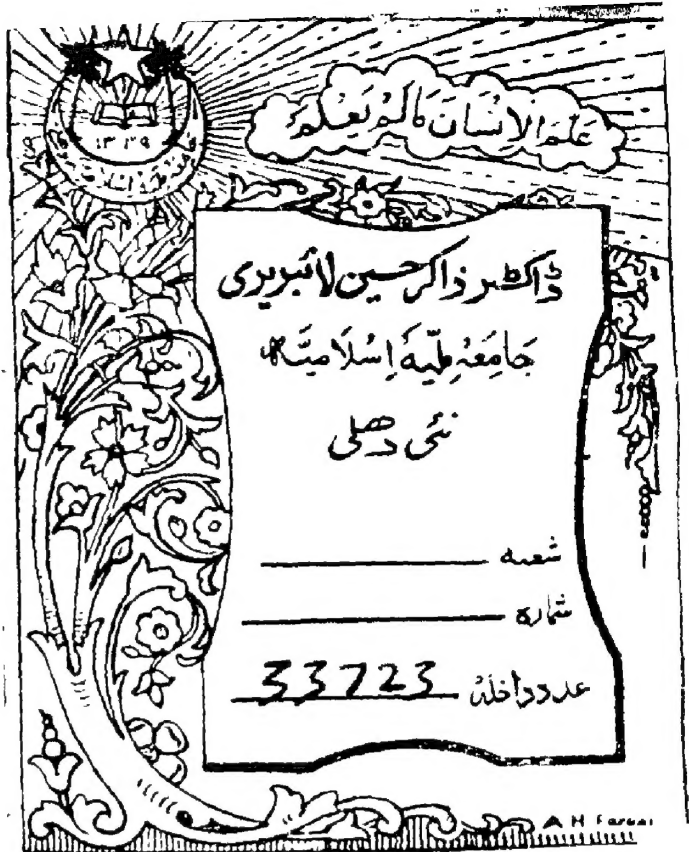 عَلَّمَ الْاِنْسَانَ مَالَمْ يَعْلَمْ
۱۳۳۹
ڈاکٹر ذاکر حسین لائبریری
جَامِعَہ مِلّیہ اِسْلَامِیَّہ
نئی دھلی
شعبہ
شمارہ
عدد داخلہ 33723
A H Faruqi